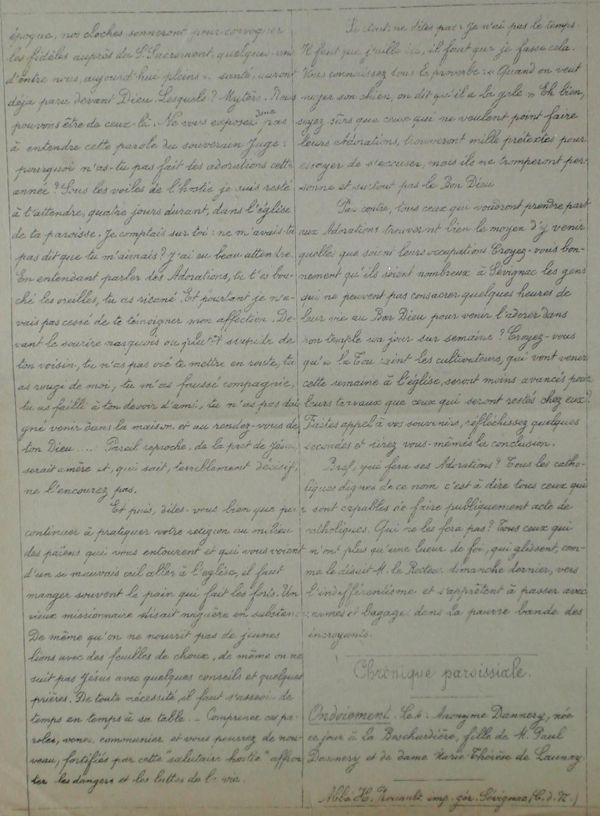 époque, nos cloches sonneront pour convoquer
les fidèles auprès du S. Sacrement, quelques-uns
d'entre nous, aujourd'hui pleins de santé, auront
déjà paru devant Dieu. Lesquels? Mystère. Nous
pouvons être de ceux-là. Ne vous exposez donc pas
à entendre cette parole du souverain Juge:
pourquoi n'as-tu pas fait tes adorations cette
année? Sous les voiles de l'hostie je suis resté
à t'attendre, quatre jours durant, dans l'église
de ta paroisse. Je comptais sur toi: ne m'avais-tu
pas dit que tu m'aimais? J'ai eu beau attendre.
En entendant parler des Adorations, tu t'es bou-
ché les oreilles, tu as ricané. Et pourtant je n'a-
vais pas cessé de te témoigner mon affection. De-
vant le sourire narquois ou stupide de
ton voisin, tu n'as pas osé te mettre en route, tu
as rougi de moi, tu m'as faussé compagnie,
tu as failli à ton devoir d'ami, tu n'as pas dai
gné venir dans la maison et au rendez-vous de
ton Dieu.... Pareil reproche, de la part de Jésus,
serait amère et, qui sait, terriblement décisif;
ne l'encourez pas.
Et puis, dites-vous bien que pour
continuer à pratiquer votre religion au milieu
des païens qui vous entourent et qui vous voient
d'un si mauvais œil aller à l'église, il faut
manger souvent le pain qui fait les forts. Un
vieux missionnaire disait naguère en substance:
De même qu'on ne nourrit pas de jeunes
lions avec des feuilles de choux, de même on ne
suit pas Jésus avec quelques conseils et quelques
prières. De toute nécessité, il faut s'asseoir de
temps en temps à sa table... Comprenez ces pa-
roles, venez communier et vous pourrez de nou-
veau, fortifiés par cette "salutaire hostie" affron-
ter les dangers et les luttes de la vie.
Surtout ne dites pas: Je n'ai pas le temps.
Il faut que j'aille ici, il faut que je fasse cela.
Vous connaissez tous le proverbe: "Quand on veut
noyer son chien, on dit qu'il a la gale". Eh bien,
soyez sûrs que ceux qui ne veulent point faire
leurs Adorations, trouveront mille prétextes pour
essayer de s'excuser, mais ils ne tromperont per-
sonne et surtout pas le Bon Dieu
Par contre, tous ceux qui voudront prendre part
aux Adorations trouveront bien le moyen d'y venir
quelles que soient leurs occupations. Croyez-vous bon-
nement qu'ils soient nombreux à Sévignac les gens
qui ne peuvent pas consacrer quelques heures de
leur vie au Bon Dieu pour venir l'adorer dans
son temple un jour sur semaine? Croyez-vous
qu'à la Toussaint les cultivateurs, qui vont venir
cette semaine à l'église, seront moins avancés pour
leurs travaux que ceux qui seront restés chez eux?
Faites appel à vos souvenirs, réfléchissez quelques
secondes et tirez vous-mêmes la conclusion.
Bref, qui fera ses Adorations? Tous les catho-
liques dignes de ce nom c'est à dire tous ceux qui
sont capables de faire publiquement acte de
catholiques. Qui ne les fera pas? Tous ceux qui
n'ont plus qu'une lueur de foi, qui glissent, com-
me le disait M. le Recteur dimanche dernier, vers
l'indifférentisme et s'apprêtent à passer avec
armes et bagages dans la pauvre bande des
incroyants.
Chronique paroissiale.
Ondoiement. Le 6: Anonyme Dannery, née
ce jour à la Bschardière, fille de M. Paul
Dannery et de dame Marie Thérèse de Launay.
Abbé H. Rouault imp. gér. Sévignac (C. d. N.)